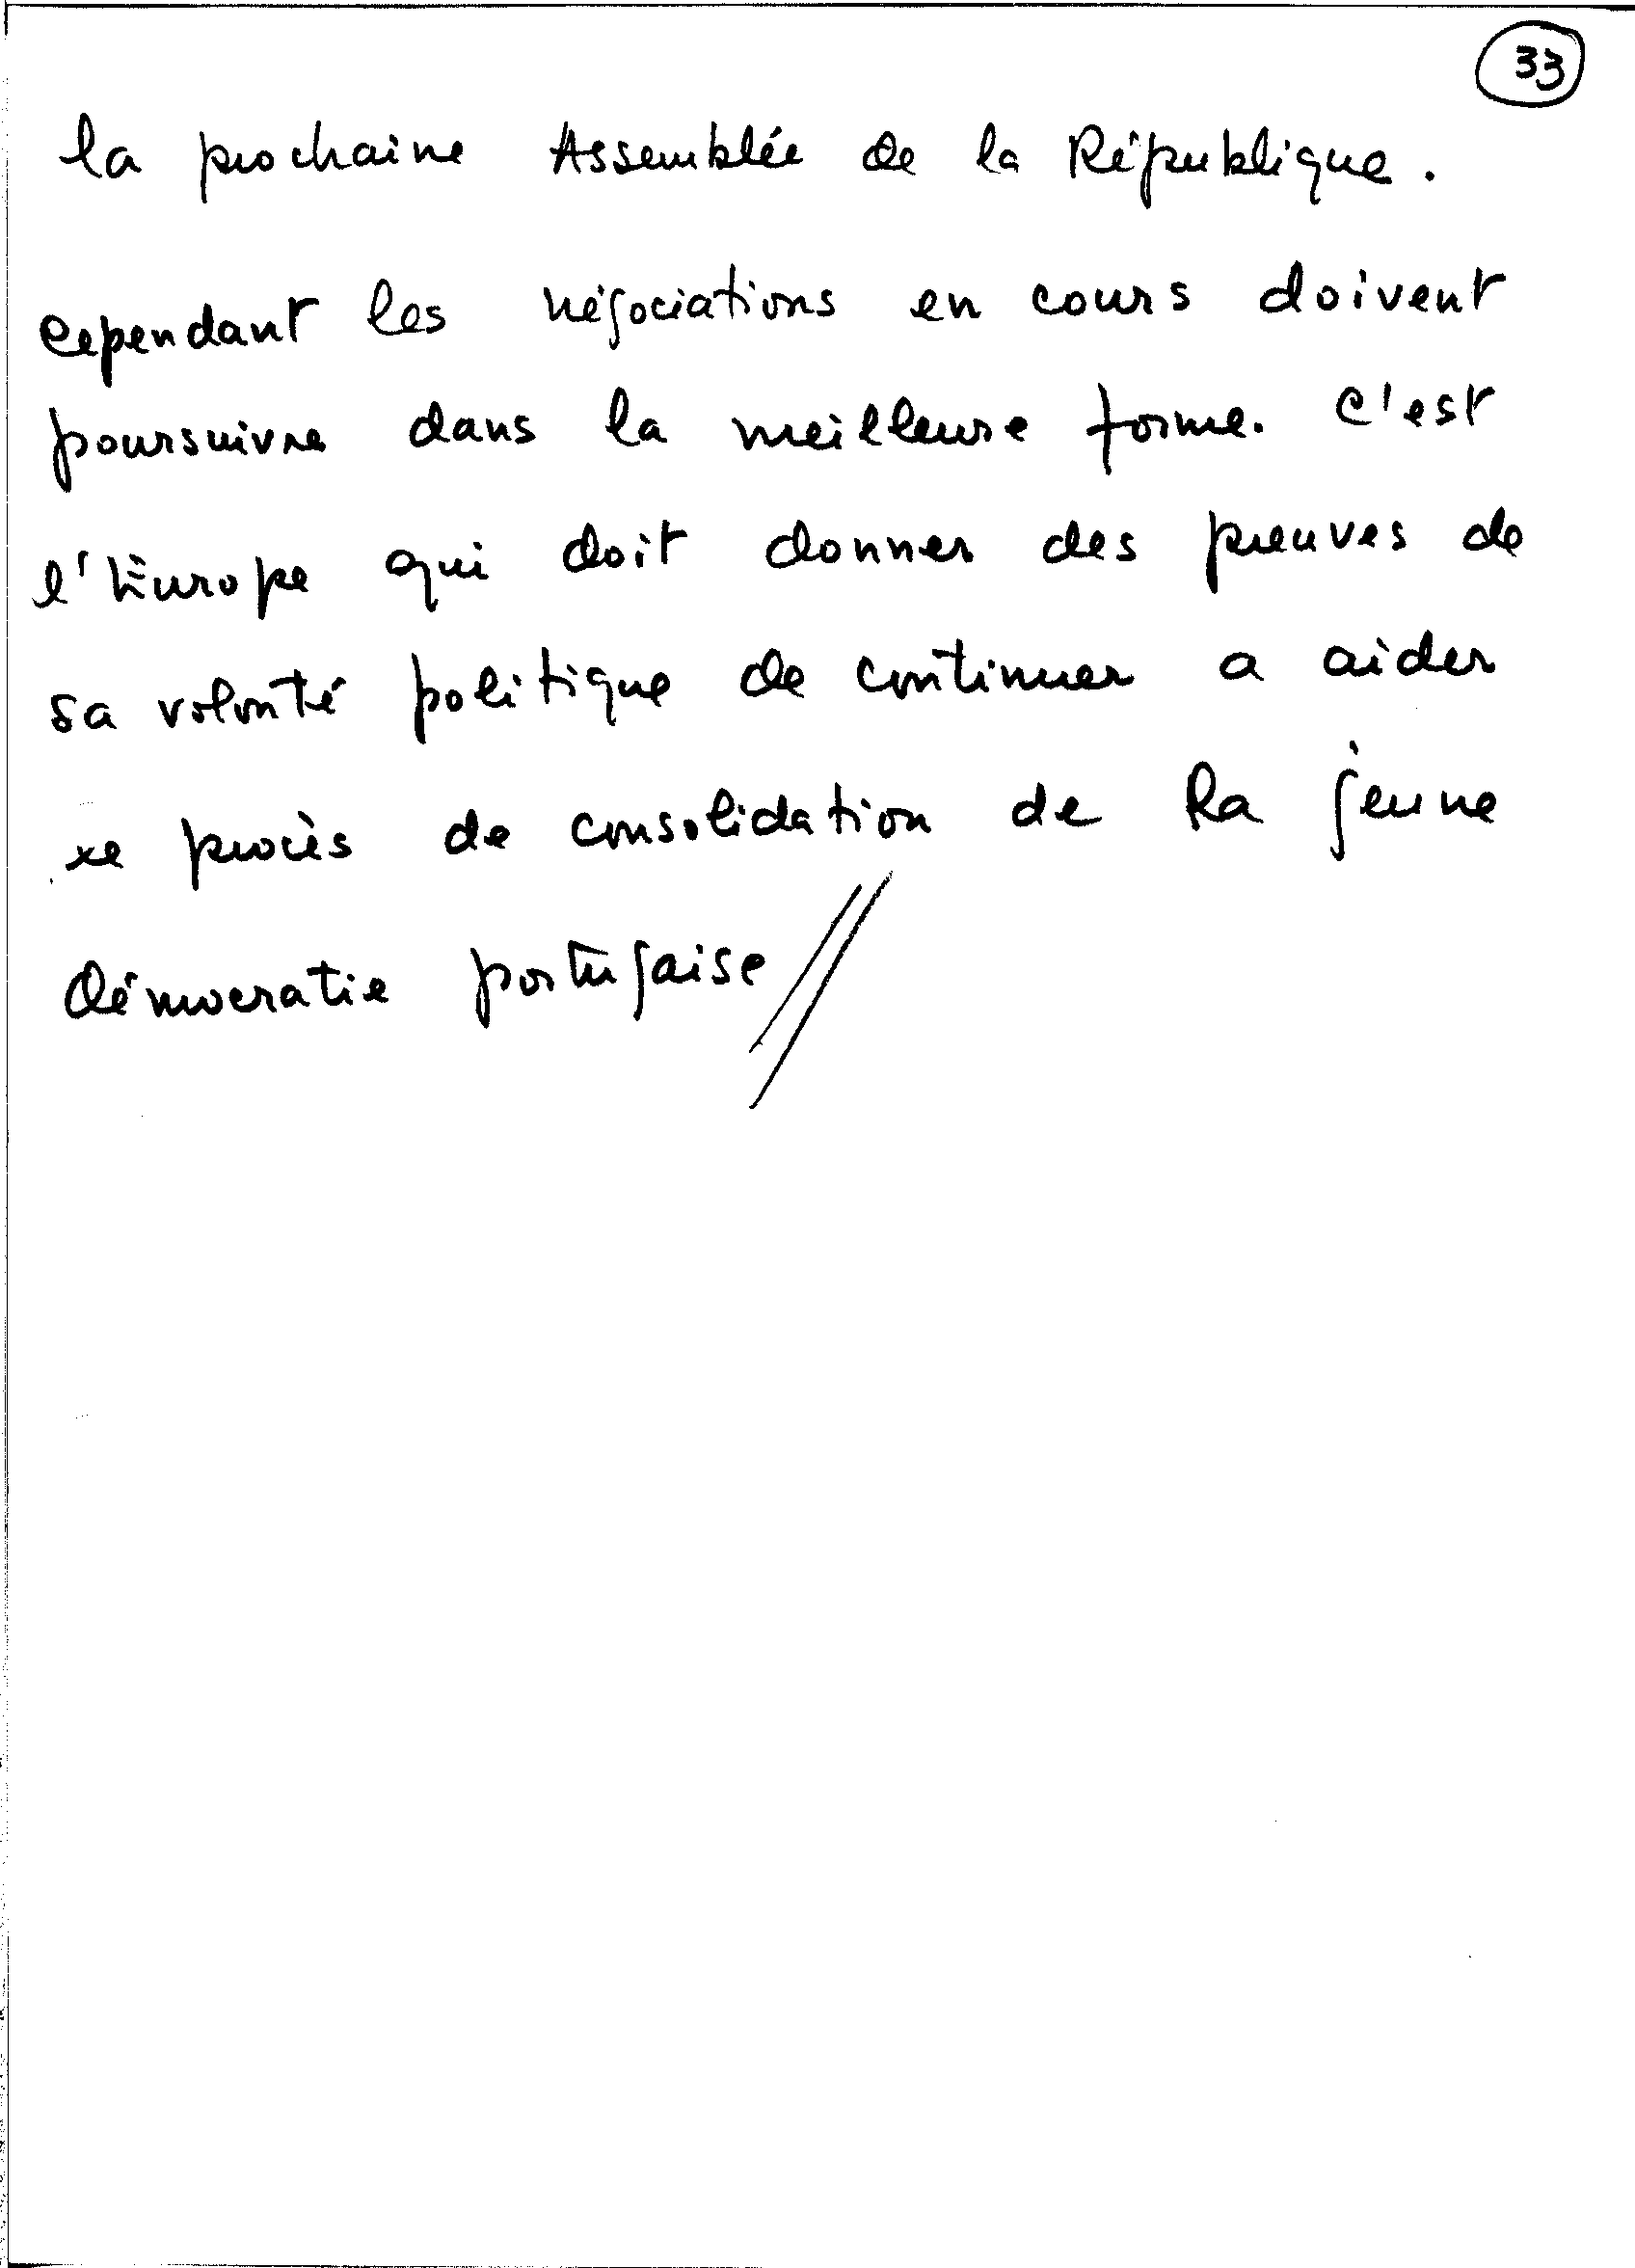 33
la prochaine Assemblée de la République.
cependant les négociations en cours doivent
poursuivre dans la meilleure forme. C'est
l'Europe qui doit donner des preuves de
sa volonté politique de continuer a aider
procès de consolidation de la jeune
démocratie portugaise//